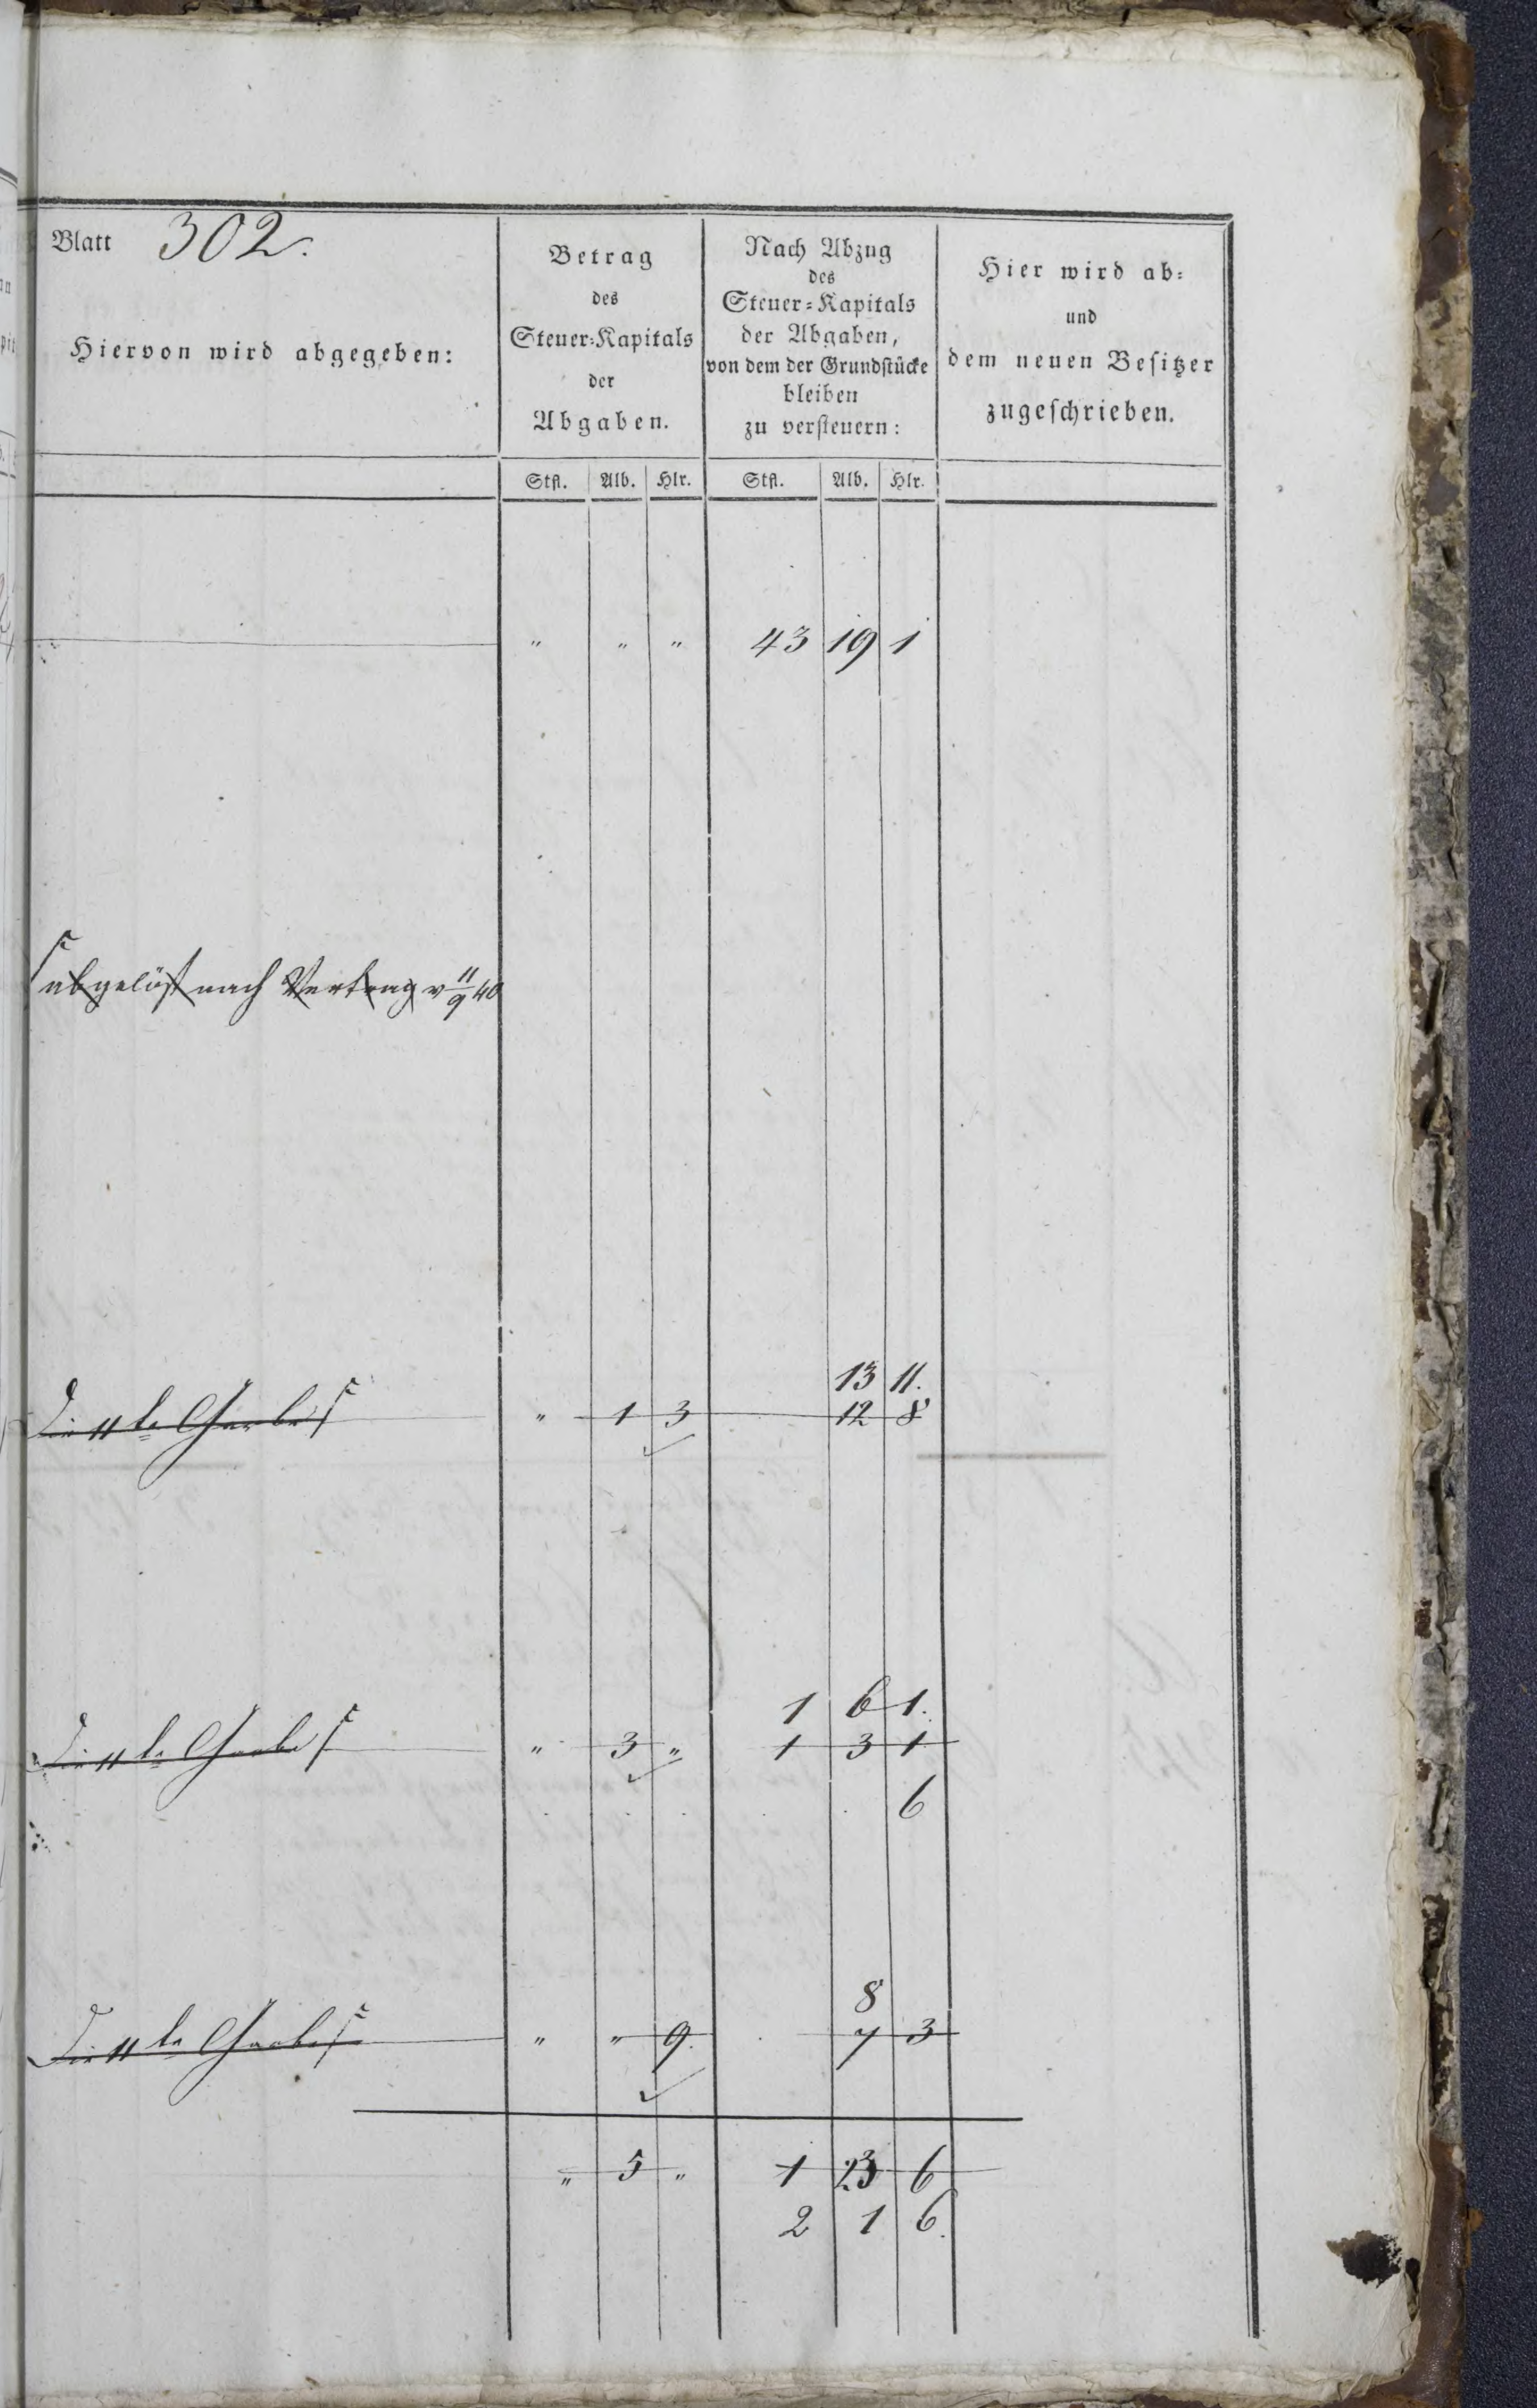 Blatt 302.
Hiervon wird abgegeben:
Betrag
des
Steuer-Kapitals
der
Abgaben.
Nach Abzug
des
Steuer-Kapitals
der Abgaben,
von dem der Grundstücke
bleiben
zu versteuern:
Hier wird ab-
und
dem neuen Besitzer
zugeschrieben.
Stfl. Alb. Hlr. Stfl. Alb. Hlr.
" " " 43 19 1
abgelöst nach Vertrag v 11/9 40
13 11.
Die 11te Garbe " 1 3 12 8
1 6 1.
Die 11te Garbe " 3 " 1 3 1
6
8
Die 11te Garbe " " 9. 7 3
" 5 " 1 23 6
2 1 6.